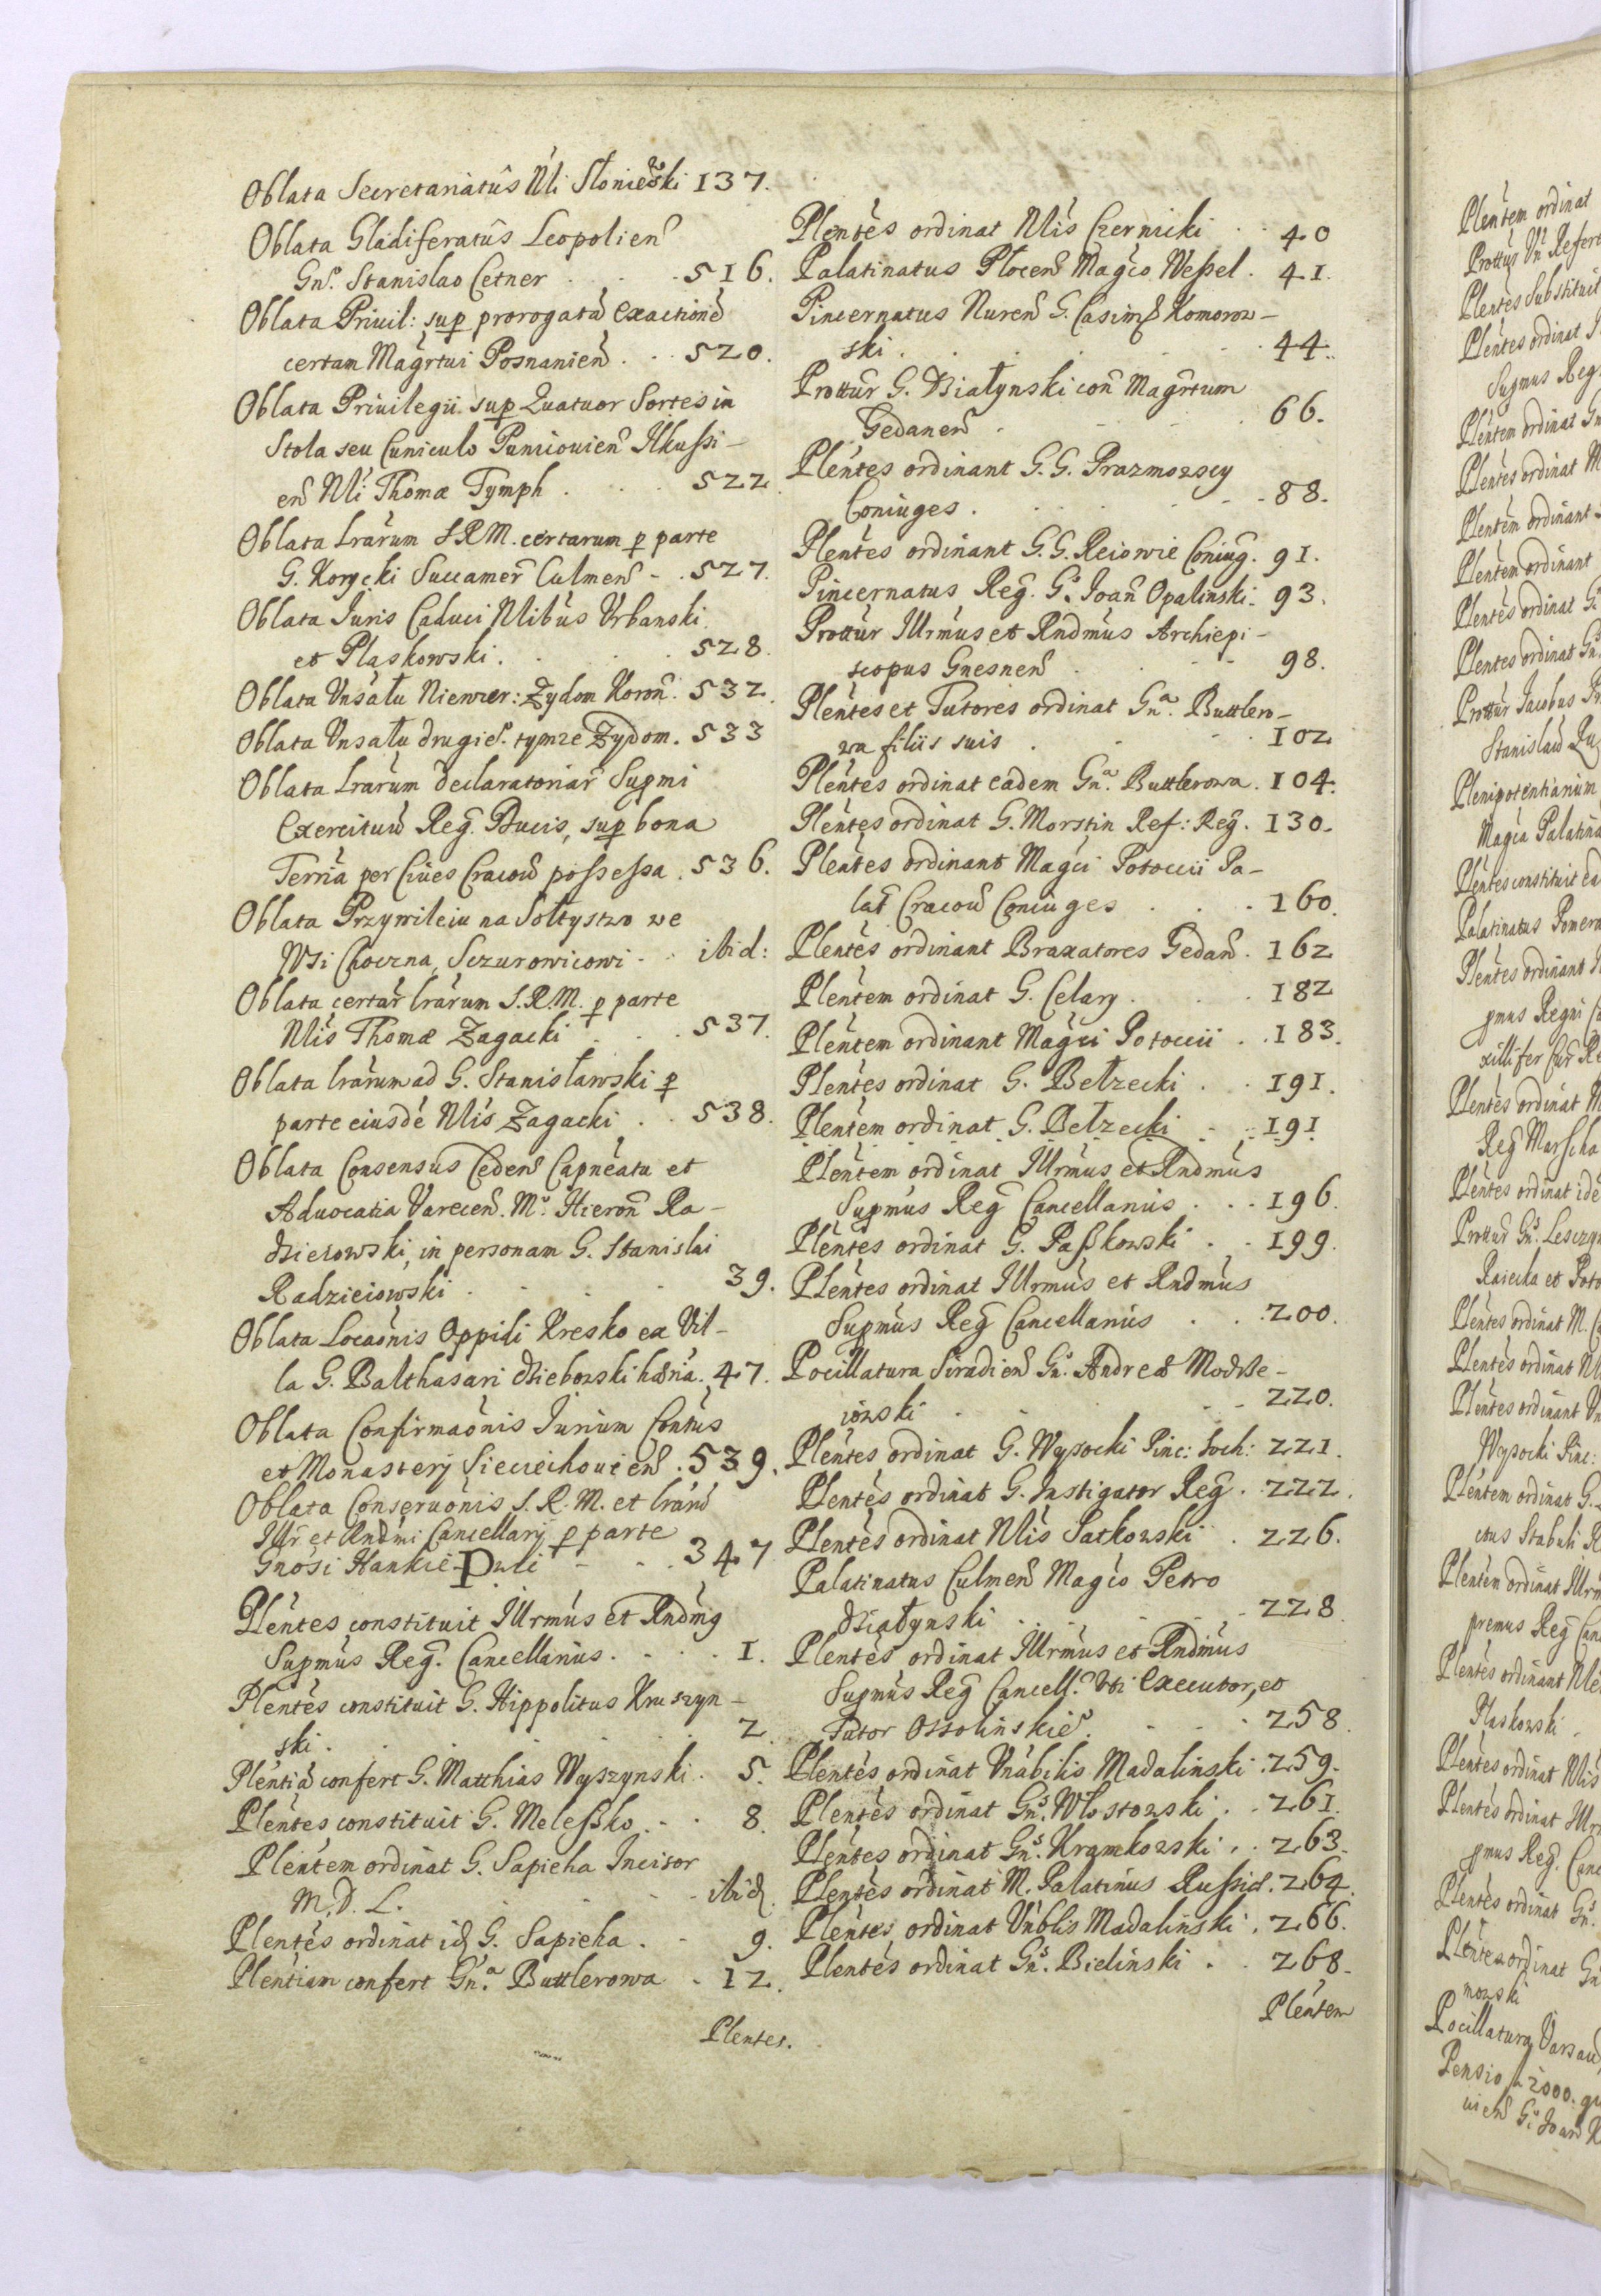 Oblata Secretariatûs Nli Słoniewski 137.
Oblata Gladiferatûs Leopolien̄
Gn̄s. Stanislao Cetner . . . 516.
Oblata Priuil: sup prorogatā exactionē
certam Magr̄tui Posnanien̄ . . . 520.
Oblata Priuilegii sup Quatuor Sortes in
Stola seu Cuniculo Ponikouien̄ Ilkussi-
en̄ Nli Thomæ Tymph . . . 522
Oblata Lrārum S.R.M. certarum p parte
G. Korycki Succamer̄ Culmen̄ - . 527.
Oblata Iuris Caduci Nlibûs Vrbanski
et Plaskowski . . . 528.
Oblata Vnsału Niewier: Żydom Koron̄. 532.
Oblata Vnsału drugie. tymze Żydom. 533
Oblata Lrārum declaratoriar̄ Supmi
Exercituū Reg. Ducis, sup bona
Terrīa per Ciues Cracou possessa . 536.
Oblata Przywileiu na Sołtystwo we
Wsi Choczna, Sczurowicowi . . ibid:
Oblata certar̄ lrārum S.R.M. p parte
Nlis Thomæ Zagacki . . . 537.
Oblata lrārum ad G. Stanisławski p
parte eiusdē Nlis Zagacki . . 538.
Oblata Consensûs Ceden̄ Capneatu et
Aduocatia Varecen̄. Mo. Hieron̄ Ra-
dzieiowski, in personam G. Stanislai
Radzieiowski . . . 39.
Oblata Locaōnis Oppidi Kresko ex Vil-
la G. Balthasari Dziebowski hærīa. 47.
Oblata Confirmaōnis Iurium Contûs
et Monasterij Sieciechouien̄ . 539.
Oblata Conseruōnis S.R.M. et lrārū
Illr̄ et Rndmi Cancellarij p parte
Gnosi Hankie-Pwli - - . 347
Plentes constituit Illrmus et Rndmꝯ
Supmus Reg. Cancellarius . . . 1.
Plentes constituit G. Hippolitus Kruszyn-
ski . . . 2.
Plentiā confert G. Matthias Wyszynski . 5.
Plentes constituit G. Meleszko . . . 8.
Plentem ordinat G. Sapieha Incisor
M.D.L. . . . ibid.
Plentes ordinat id G. Sapieha . . 9.
Plentiam confert Gn̄a Buttlerowa . 12.
Plentes.
Plentes ordinat Nlis Czernicki . . 40
Palatinatus Plocen̄ Magco Wessel . 41.
Pincernatus Nuren̄ G. Casimꝭ Komorow-
ski . . . 44.
Prottur̄ G. Działynski con̄ Magr̄tum
Gedanen̄ . . . 66.
Plentes ordinant G.G. Prazmowscy
Coniuges . . . 88.
Plentes ordinant G.G. Reiowie Coniug. 91.
Pincernatus Reg. Go Ioan̄ Opalinski . 93.
Prottur Illrmus et Rndmus Archiepi-
scopus Gnesnen̄ . . . 98.
Plentes et Tutores ordinat Gn̄a. Buttlero-
wa filiis suis . . . 102
Plentes ordinat eadem Gn̄a. Buttlerowa . 104.
Plentes ordinat G. Morstin Ref: Reg. 130.
Plentes ordinant Magci Potoccii Pa-
lat̄ Cracou Coniuges . . . 160.
Plentes ordinant Braxatores Gedan̄ . 162
Plentem ordinat G. Celary . . . 182
Plentem ordinant Magci Potoccii . . 183.
Plentes ordinat G. Bełzecki . . 191.
Plentem ordinat G. Bełzecki . . 191
Plentem ordinat Illrmus et Rndmus
Supmus Reg Cancellarius . . . 196.
Plentes ordinat G. Paszkowski . . 199.
Plentes ordinat Illrmus et Rndmus
Supmus Reg Cancellarius . . . 200.
Pocillatura Siradien̄ Gn̄o. Andreæ Modrze-
iowski . . . 220.
Plentes ordinat G. Wysocki Pinc: Soch: 221.
Plentes ordinat G. Instigator Reg . . 222.
Plentes ordinat Nlis Satkowski . 226.
Palatinatus Culmen̄ Magco Petro
Działynski . . . 228.
Plentes ordinat Illrmus et Rndmus
Supmus Reg Cancell. Vti Executor, et
Tutor Ossolinskie . . . 258.
Plentes ordinat Vnābilis Madalinski . 259.
Plentes ordinat Gn̄s. Wlostowski . . 261.
Plentes ordinat Gn̄s. Kramkowski . . 263.
Plentes ordinat M. Palatinus Russiæ. 264.
Plentes ordinat Vnblis Madalinski . 266.
Plentes ordinat Gn̄s. Bielinski . . 268.
Plentem
Plentem ordinat
Prottur Vn̄ Refer
Plentes Substituit
Plentes ordinat
Supmus Reg
Plentem ordinat Gn
Plentes ordinat M
Plentem ordinant
Plentem ordinant
Plentes ordinat G
Plentes ordinat Gn̄
Prottur Iacobus
Stanislaū
Plenipotentiarium
Magca Palatina
Plentes constituit ea
Palatinatus Pomera
Plentes ordinant
pmus Regni Ca
xillifer Cur̄ Re
Plentes ordinat M
Reg Marscha
Plentes ordinat ide
Prottur Gn̄s. Lesczyn
Raiecka et Poto
Plentes ordinat M. Ca
Plentes ordinat Nl
Plentes ordinant Vn
Wysocki Pinc:
Plentem ordinat G.
ctus Stabuli R
Plentem ordinat Illrm
premus Reg Canc
Plentes ordinant Nle
Plaskowski .
Plentes ordinat Nlis
Plentes ordinat Illr
pmus Reg. Canc
Plentes ordinat Gn̄s.
Plentes ordinat Gn
mowski
Pocillatura Varsau
Pensio fl 2000. qu
uien̄ Go. Ioan̄ K